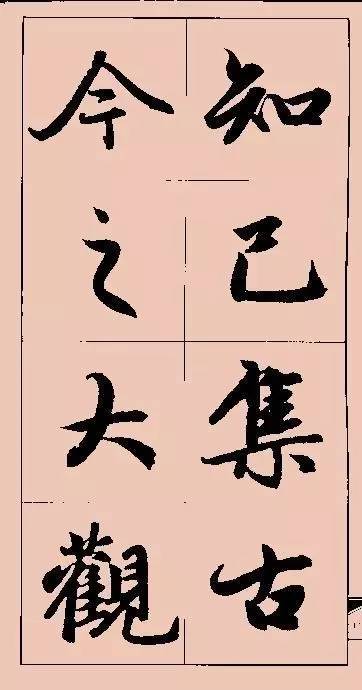 知己集古
今之大觀